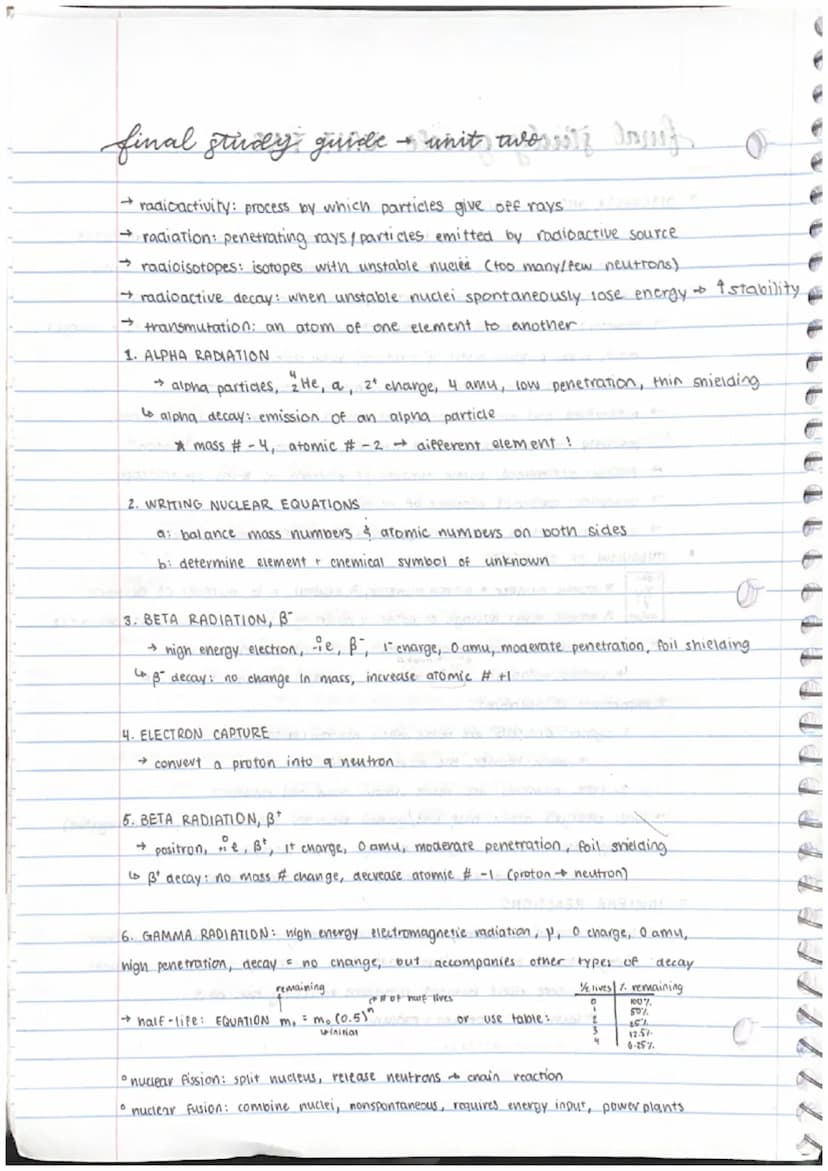 final study guide → unit two
→ radioactivity: process by which particles give off rays
→ radiation: penetrating rays/particles emitted by radioactive source
→ radioisotopes: isotopes with unstable nuclei (too many/few neutrons)
→ radioactive decay: when unstable nuclei spontaneously lose energy → ↑stability
→ transmutation: an atom of one element to another
1. ALPHA RADIATION
→ alpha particles, ⁴₂He, α, 2⁺ charge, 4 amu, low penetration, thin shielding
↳ alpha decay: emission of an alpha particle
* mass # -4, atomic # -2 → different element !
2. WRITING NUCLEAR EQUATIONS
a: balance mass numbers & atomic numbers on both sides
b: determine element + chemical symbol of unknown
3. BETA RADIATION, β⁻
→ high energy electron, ⁰₋₁e, β⁻, 1⁻ charge, 0 amu, moderate penetration, foil shielding
↳ β⁻ decay: no change in mass, increase atomic # +1
4. ELECTRON CAPTURE
→ convert a proton into a neutron
5. BETA RADIATION, β⁺
→ positron, ⁰₊₁e, β⁺, 1⁺ charge, 0 amu, moderate penetration, foil shielding
↳ β⁺ decay: no mass # change, decrease atomic # -1 (proton → neutron)
6. GAMMA RADIATION: high energy electromagnetic radiation, γ, 0 charge, 0 amu,
high penetration, decay = no change, but accompanies other types of decay
remaining
# of half lives
→ half-life: EQUATION m₁ = m₀ (0.5)ⁿ or use table:
initial
½ lives | % remaining
0 | 100%
1 | 50%
2 | 25%
3 | 12.5%
4 | 6.25%
° nuclear fission: split nucleus, release neutrons → chain reaction
° nuclear fusion: combine nuclei, nonspontaneous, requires energy input, power plants